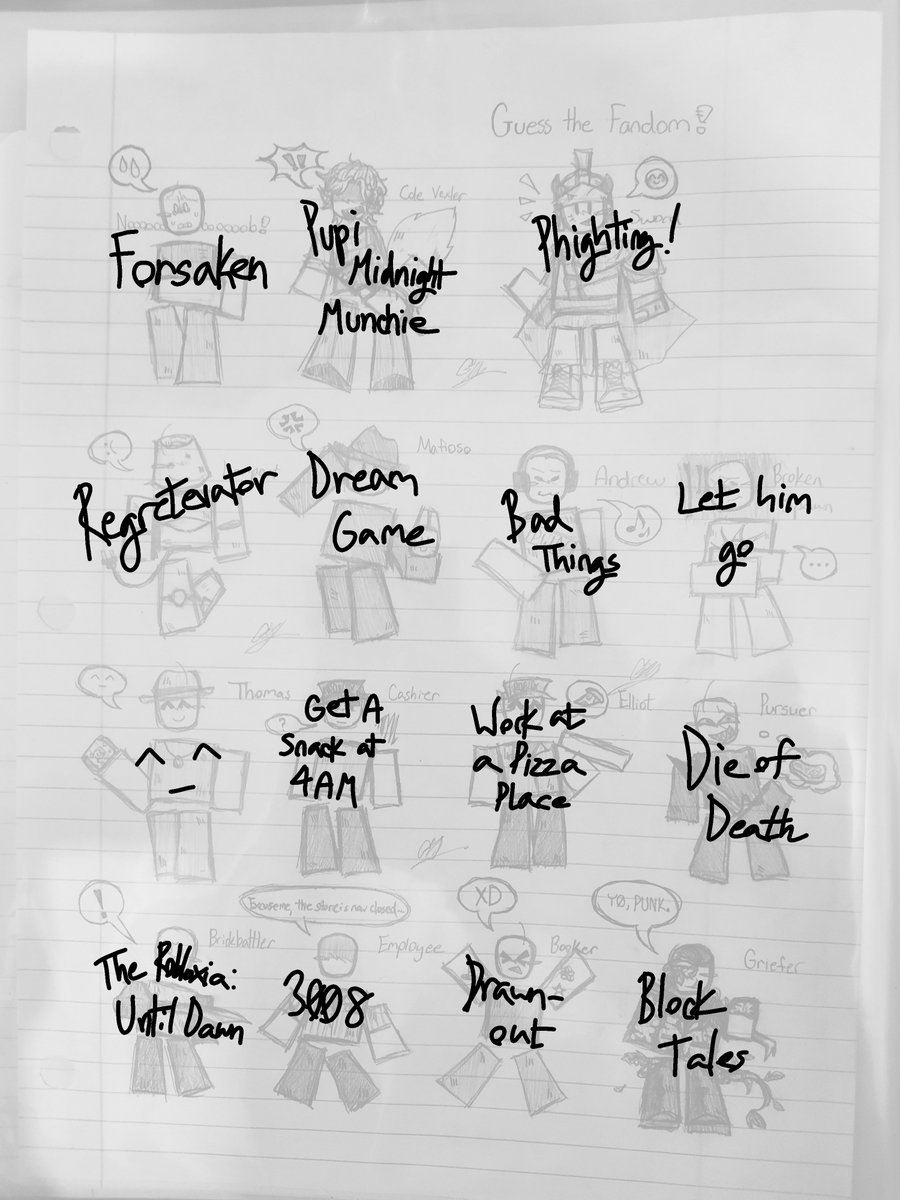 Guess the Fandom!?
Cole Vexler
Forsaken
Pupi
Midnight
Munchie
Phighting!
Mafioso
Regretevator
Dream
Game
Andrew
Bad
Things
Broken
Let him
go
...
Thomas
^ - ^
Cashier
?
Get A
Snack at
4AM
Elliot
Work at
a Pizza
Place
Pursuer
Die of
Death
!
Brickbattler
The Robloxia:
Until Dawn
Excuse me, the store is now closed...
Employee
3008
XD
Booker
Drawn-
out
YØ, PUNK.
Griefer
Block
Tales